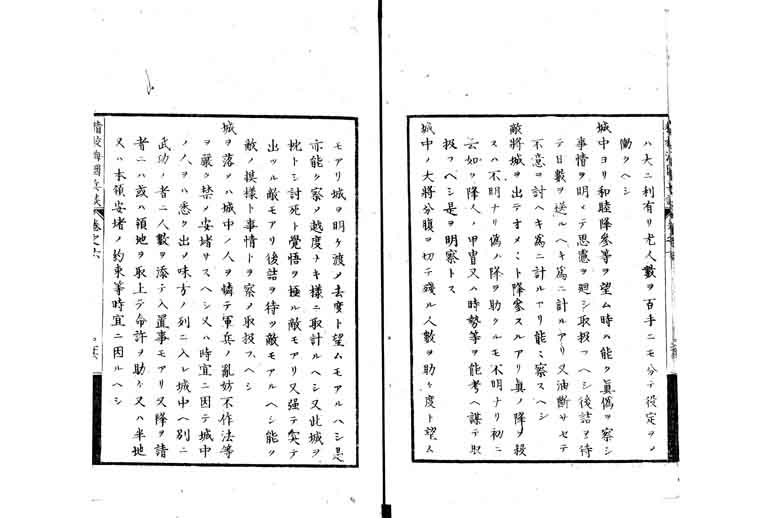 ハ大ニ利有リ尤人數ヲ百手ニモ分テ役定ヲメ
働クヘシ
城中ヨリ和睦降參等ヲ望ム時ハ能ク眞僞ヲ察シ
事情ヲ明ィテ思慮ヲ廻シ取扱フヘシ後詰ヲ待
テ日數ヲ送ルヘキ爲ニ計ルアリ又油斷サセテ
不意ヲ討ヘキ爲ニ計ルアリ能ミ察スヘシ
敵將城ヲ出テオメミト降參スルアリ眞ノ降ヲ殺
スハ不明ナリ僞ノ降ヲ助クルモ不明ナリ初ニ
云如ク降人ノ甲冑又ハ時勢等ヲ能考ヘ謀テ取
扱フヘシ是ヲ明察トス
城中ノ大將分腹ヲ切テ殘ル人數ヲ助ケ度ト望ム
モアリ城ヲ明ケ渡メ去度ト望ムモアルヘシ是
亦能ク察メ越度ナキ樣ニ取計ルヘシ又此城ヲ
枕トシ討死ト覺悟ヲ極ル敵モアリ又强テ突テ
出ツル敵モアリ後詰ヲ待ツ敵モアルヘシ能ク
敵ノ摸樣ト事情トヲ察メ取扱フヘシ
城ヲ落メハ城中ノ人ヲ憐テ軍兵ノ亂妨不作法等
ヲ嚴ク禁メ安堵サスヘシ又ハ時宜ニ因テ城中
ノ人ヲハ悉ク出メ味方ノ列ニ入レ城中ヘ別ニ
武功ノ者ニ人數ヲ添テ入置事モアリ又降ヲ請
者ニハ或ハ領地ヲ取上テ命許ヲ助ケ又ハ半地
又ハ本領安堵ノ約束等時宜ニ因ルヘシ
海國兵談
卷之六